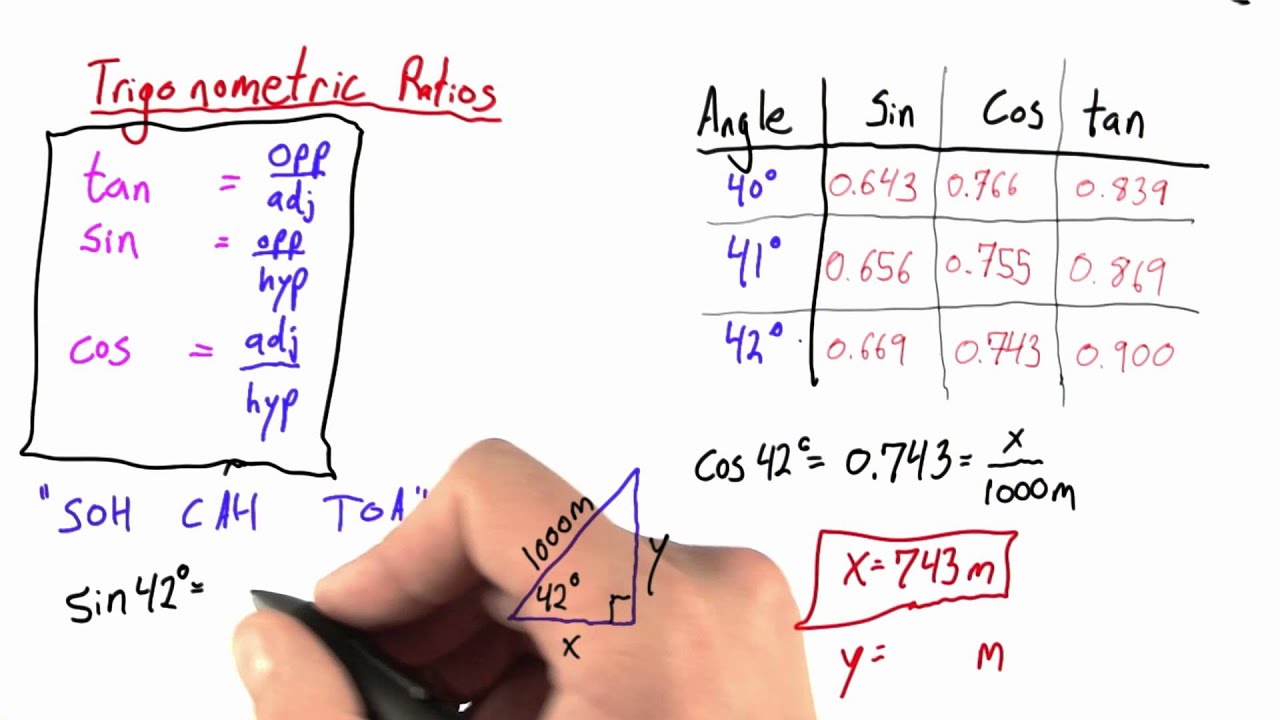 Trigonometric Ratios
tan = opp/adj
sin = opp/hyp
cos = adj/hyp
"SOH CAH TOA"
sin 42° =
1000m
42°
x
y
Angle sin cos tan
40° 0.643 0.766 0.839
41° 0.656 0.755 0.869
42° 0.669 0.743 0.900
cos 42° = 0.743 = x/1000m
x = 743 m
y = m